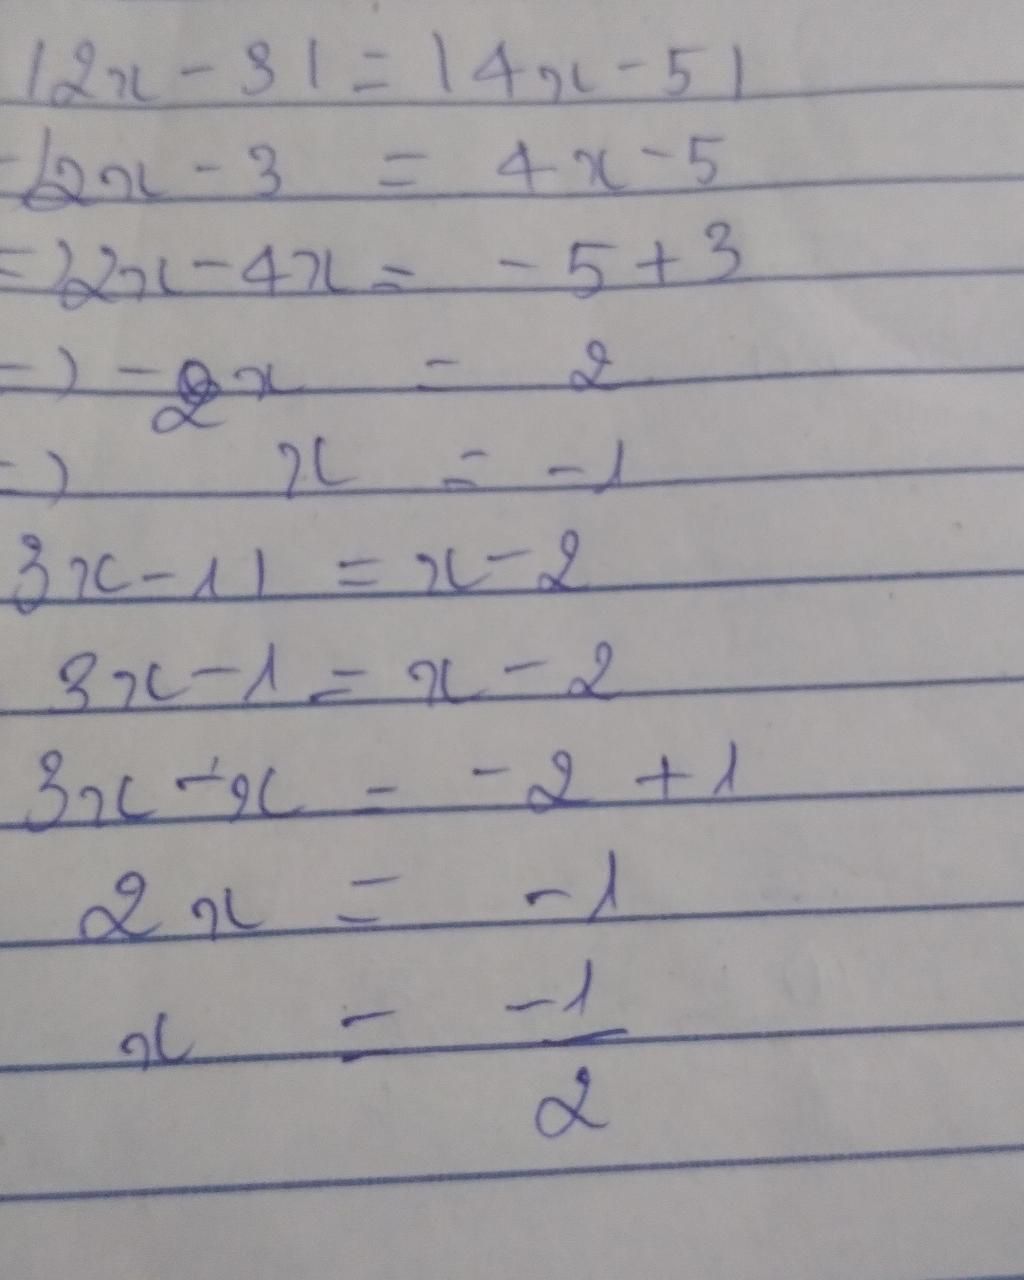 |2x - 3| = |4x - 5|
2x - 3 = 4x - 5
=) 2x - 4x = - 5 + 3
=) - 2x = 2
=) x = -1
3x - 1| = x - 2
3x - 1 = x - 2
3x - x = -2 + 1
2x = -1
x = -1/2